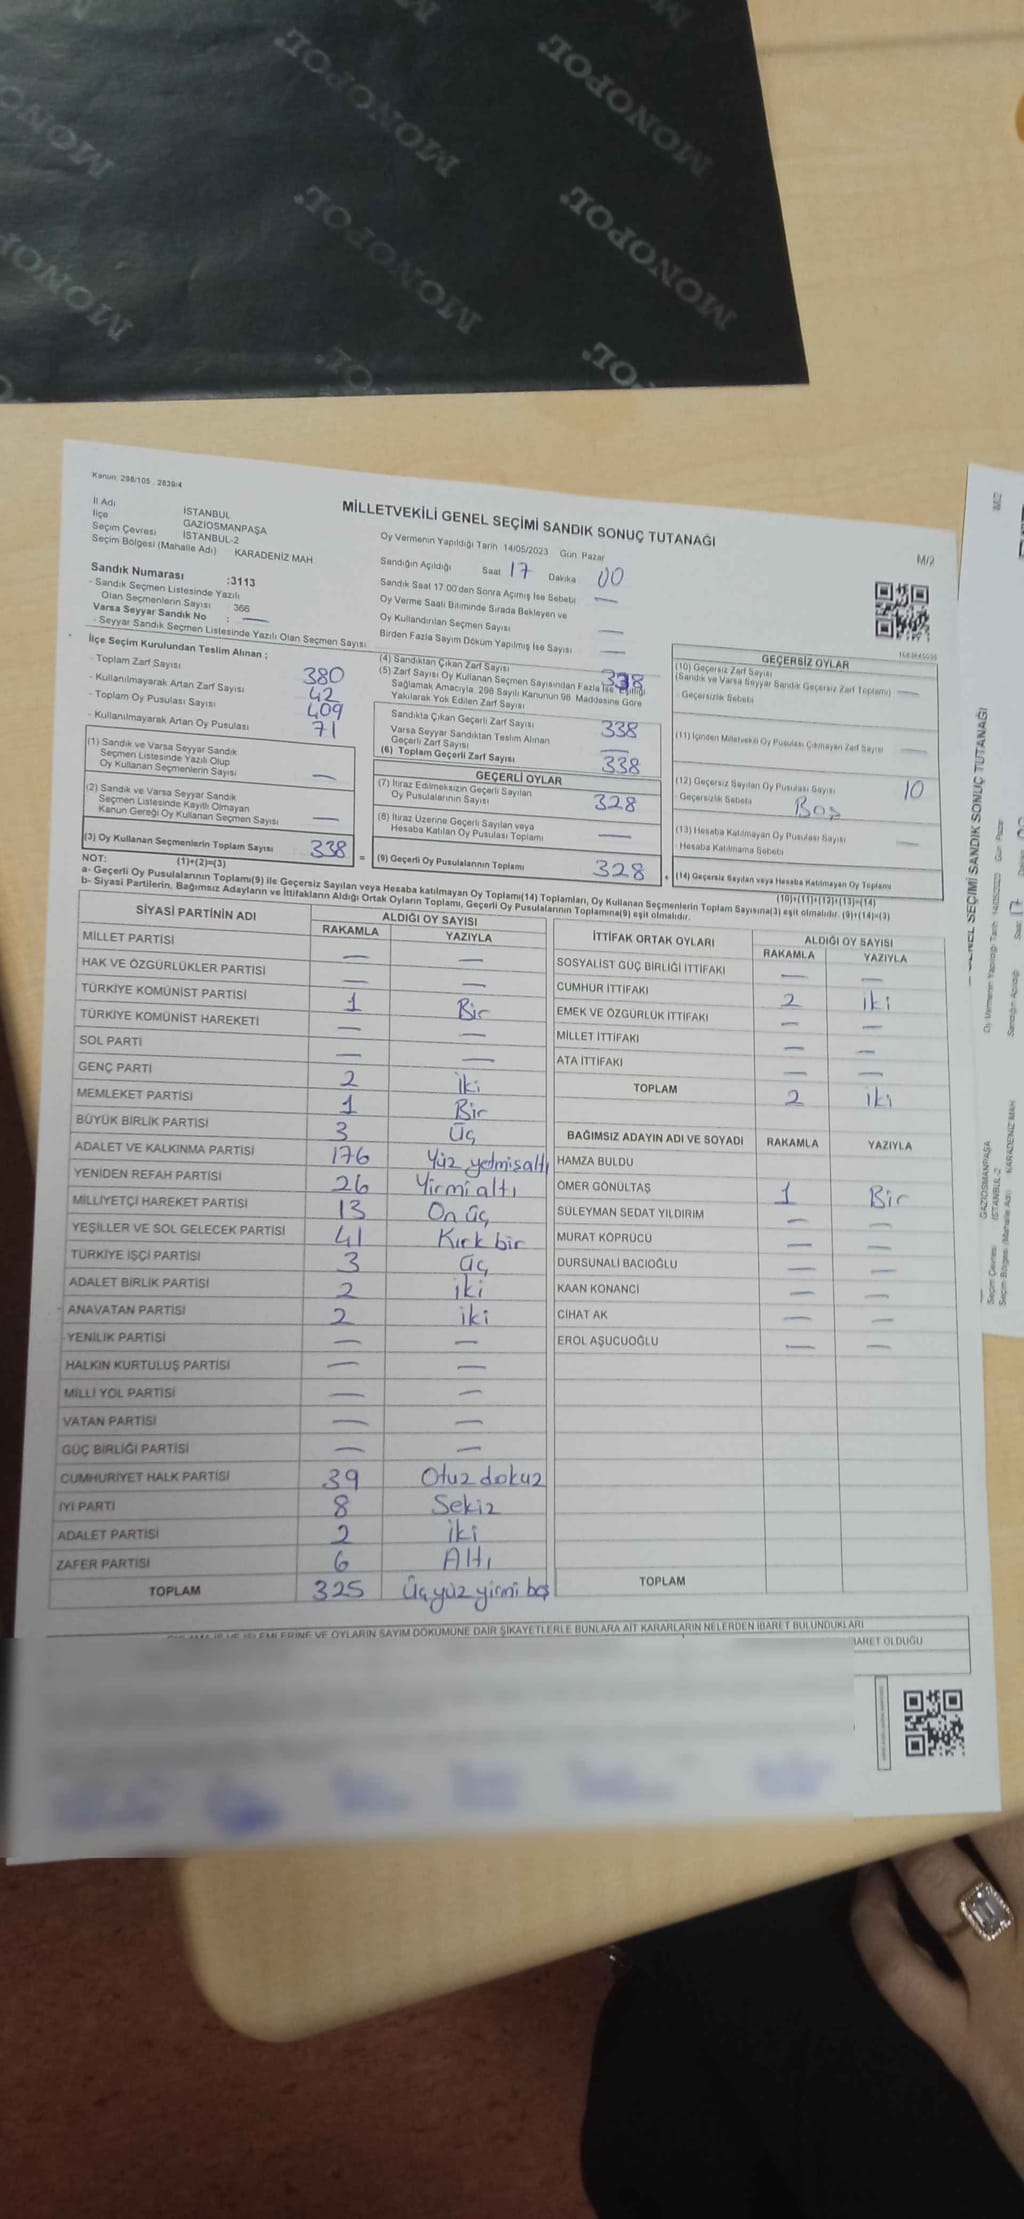 MONOPOL
MONOPOL
MONOPOL
MONOPOL
MONOPOL
MONOPOL
Kanun: 298/105 , 2839/4
MİLLETVEKİLİ GENEL SEÇİMİ SANDIK SONUÇ TUTANAĞI
M/2
İl Adı İSTANBUL
İlçe GAZİOSMANPAŞA
Seçim Çevresi İSTANBUL-2
Seçim Bölgesi (Mahalle Adı) KARADENİZ MAH
Sandık Numarası :3113
- Sandık Seçmen Listesinde Yazılı
Olan Seçmenlerin Sayısı : 366
Varsa Seyyar Sandık No : —
- Seyyar Sandık Seçmen Listesinde Yazılı Olan Seçmen Sayısı
Oy Vermenin Yapıldığı Tarih 14/05/2023 Gün Pazar
Sandığın Açıldığı Saat 17 Dakika 00
Sandık Saat 17.00'den Sonra Açılmış İse Sebebi —
Oy Verme Saati Bitiminde Sırada Bekleyen ve
Oy Kullandırılan Seçmen Sayısı —
Birden Fazla Sayım Döküm Yapılmış İse Sayısı —
İlçe Seçim Kurulundan Teslim Alınan ;
- Toplam Zarf Sayısı 380
- Kullanılmayarak Artan Zarf Sayısı 42
- Toplam Oy Pusulası Sayısı 409
- Kullanılmayarak Artan Oy Pusulası 71
(1) Sandık ve Varsa Seyyar Sandık
Seçmen Listesinde Yazılı Olup
Oy Kullanan Seçmenlerin Sayısı —
(2) Sandık ve Varsa Seyyar Sandık
Seçmen Listesinde Kayıtlı Olmayan
Kanun Gereği Oy Kullanan Seçmen Sayısı —
(3) Oy Kullanan Seçmenlerin Toplam Sayısı 338
(4) Sandıktan Çıkan Zarf Sayısı 338
(5) Zarf Sayısı Oy Kullanan Seçmen Sayısından Fazla İse, Eşitliği
Sağlamak Amacıyla, 298 Sayılı Kanunun 98. Maddesine Göre
Yakılarak Yok Edilen Zarf Sayısı
Sandıkta Çıkan Geçerli Zarf Sayısı 338
Varsa Seyyar Sandıktan Teslim Alınan
Geçerli Zarf Sayısı —
(6) Toplam Geçerli Zarf Sayısı 338
GEÇERLİ OYLAR
(7) İtiraz Edilmeksizin Geçerli Sayılan
Oy Pusulalarının Sayısı 328
(8) İtiraz Üzerine Geçerli Sayılan veya
Hesaba Katılan Oy Pusulası Toplamı —
= (9) Geçerli Oy Pusulalarının Toplamı 328
GEÇERSİZ OYLAR
(10) Geçersiz Zarf Sayısı
(Sandık ve Varsa Seyyar Sandık Geçersiz Zarf Toplamı) —
- Geçersizlik Sebebi
(11) İçinden Milletvekili Oy Pusulası Çıkmayan Zarf Sayısı —
(12) Geçersiz Sayılan Oy Pusulası Sayısı 10
- Geçersizlik Sebebi Boş
(13) Hesaba Katılmayan Oy Pusulası Sayısı —
- Hesaba Katılmama Sebebi
+ (14) Geçersiz Sayılan veya Hesaba Katılmayan Oy Toplamı
NOT: (1)+(2)=(3)
(10)+(11)+(12)+(13)=(14)
a- Geçerli Oy Pusulalarının Toplamı(9) ile Geçersiz Sayılan veya Hesaba katılmayan Oy Toplamı(14) Toplamları, Oy Kullanan Seçmenlerin Toplam Sayısına(3) eşit olmalıdır. (9)+(14)=(3)
b- Siyasi Partilerin, Bağımsız Adayların ve İttifakların Aldığı Ortak Oyların Toplamı, Geçerli Oy Pusulalarının Toplamına(9) eşit olmalıdır.
SİYASİ PARTİNİN ADI ALDIĞI OY SAYISI
RAKAMLA YAZIYLA
MİLLET PARTİSİ — —
HAK VE ÖZGÜRLÜKLER PARTİSİ — —
TÜRKİYE KOMÜNİST PARTİSİ 1 Bir
TÜRKİYE KOMÜNİST HAREKETİ — —
SOL PARTİ — —
GENÇ PARTİ 2 iki
MEMLEKET PARTİSİ 1 Bir
BÜYÜK BİRLİK PARTİSİ 3 Üç
ADALET VE KALKINMA PARTİSİ 176 Yüz yetmişaltı
YENİDEN REFAH PARTİSİ 26 Yirmialtı
MİLLİYETÇİ HAREKET PARTİSİ 13 On üç
YEŞİLLER VE SOL GELECEK PARTİSİ 41 Kırk bir
TÜRKİYE İŞÇİ PARTİSİ 3 üç
ADALET BİRLİK PARTİSİ 2 iki
ANAVATAN PARTİSİ 2 iki
YENİLİK PARTİSİ — —
HALKIN KURTULUŞ PARTİSİ — —
MİLLİ YOL PARTİSİ — —
VATAN PARTİSİ — —
GÜÇ BİRLİĞİ PARTİSİ — —
CUMHURİYET HALK PARTİSİ 39 Otuz dokuz
İYİ PARTİ 8 Sekiz
ADALET PARTİSİ 2 iki
ZAFER PARTİSİ 6 Altı
TOPLAM 325 Üçyüz yirmi beş
İTTİFAK ORTAK OYLARI ALDIĞI OY SAYISI
RAKAMLA YAZIYLA
SOSYALİST GÜÇ BİRLİĞİ İTTİFAKI — —
CUMHUR İTTİFAKI 2 iki
EMEK VE ÖZGÜRLÜK İTTİFAKI — —
MİLLET İTTİFAKI — —
ATA İTTİFAKI — —
TOPLAM 2 iki
BAĞIMSIZ ADAYIN ADI VE SOYADI RAKAMLA YAZIYLA
HAMZA BULDU
ÖMER GÖNÜLTAŞ 1 Bir
SÜLEYMAN SEDAT YILDIRIM — —
MURAT KÖPRÜCÜ — —
DURSUNALİ BACIOĞLU — —
KAAN KONANCİ — —
CİHAT AK — —
EROL AŞUCUOĞLU — —
TOPLAM
İŞLEMLERİNE VE OYLARIN SAYIM DÖKÜMÜNE DAİR ŞİKAYETLERLE BUNLARA AİT KARARLARIN NELERDEN İBARET BULUNDUKLARI
BARET OLDUĞU
M/2
GENEL SEÇİMİ SANDIK SONUÇ TUTANAĞI
Oy Vermenin Yapıldığı Tarih 14/05/2023 Gün Pazar
Sandığın Açıldığı Saat 17
GAZİOSMANPAŞA
Seçim Çevresi İSTANBUL-2
Seçim Bölgesi (Mahalle Adı) KARADENİZ MAH